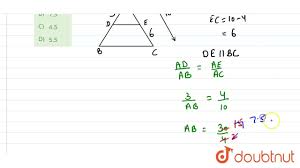 B) 7.5
C) 4.5
D) 5.5
D
E
6
B
C
EC = 10-4
= 6
DE || BC
AD/AB = AE/AC
3/AB = 4/10
AB = 30/4 15/2 7.5.
doubtnut